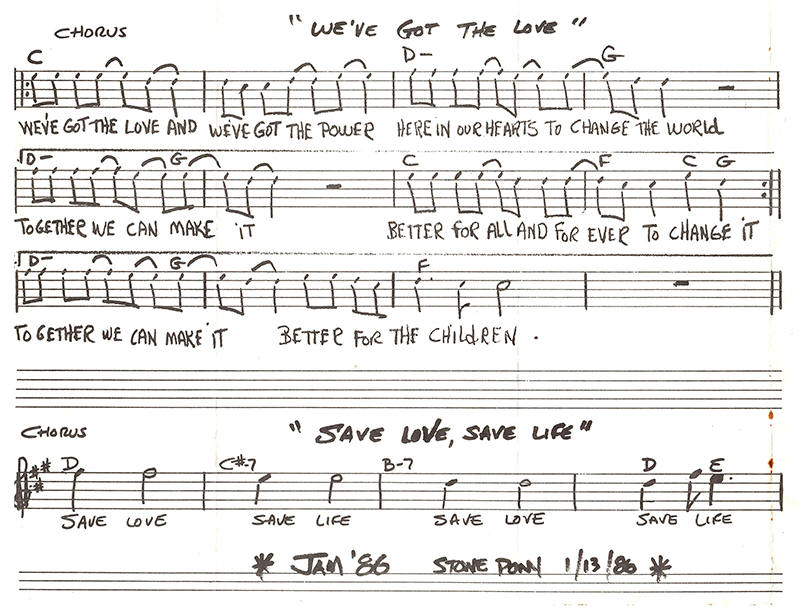 CHORUS "WE'VE GOT THE LOVE"
C D- G
WE'VE GOT THE LOVE AND WE'VE GOT THE POWER HERE IN OUR HEARTS TO CHANGE THE WORLD
D- G C F C G
TOGETHER WE CAN MAKE IT BETTER FOR ALL AND FOR EVER TO CHANGE IT
D- G F
TO GETHER WE CAN MAKE IT BETTER FOR THE CHILDREN.
CHORUS "SAVE LOVE, SAVE LIFE"
D C#-7 B-7 D E
SAVE LOVE SAVE LIFE SAVE LOVE SAVE LIFE
* JAM '86 STONE PONY 1/13/86 *